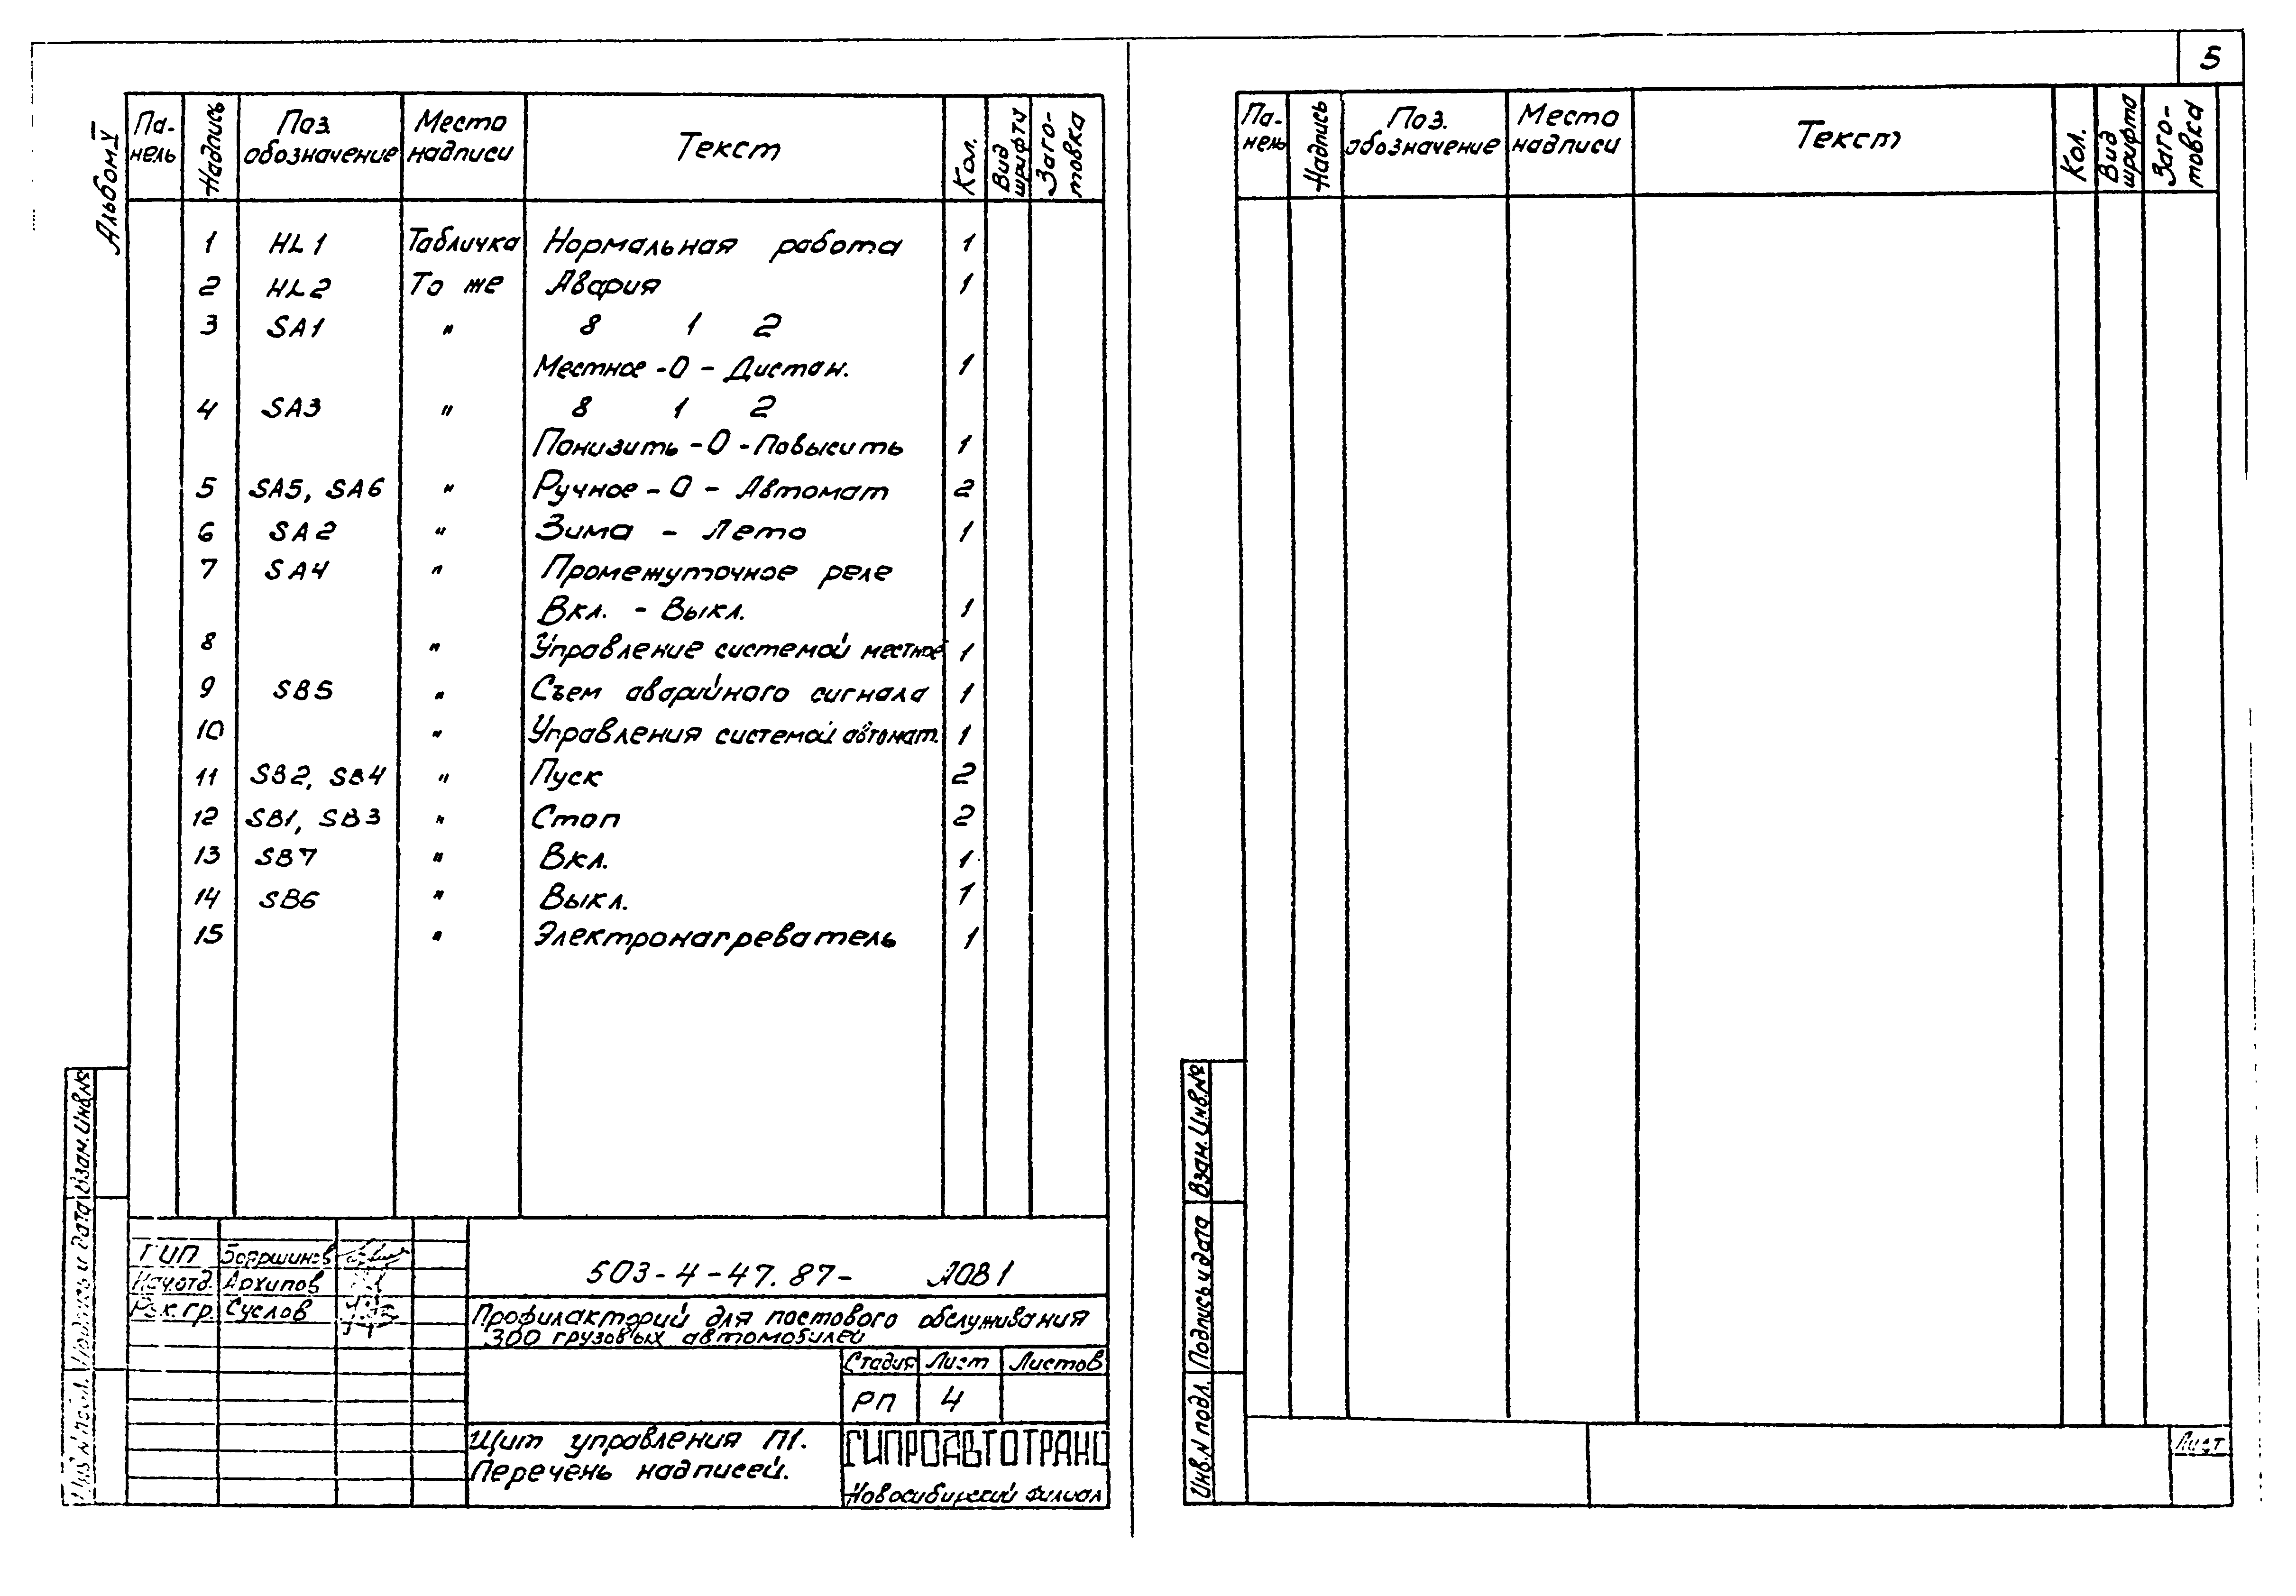 5
Альбом V
Па-нель Надпись Поз. обозначение Место надписи Текст Кол. Вид шрифта Заго-товка
1 HL1 Табличка Нормальная работа 1
2 HL2 То же Авария 1
3 SA1 " 8 1 2
Местное -0- Дистан. 1
4 SA3 " 8 1 2
Понизить -0- Повысить 1
5 SA5, SA6 " Ручное -0- Автомат 2
6 SA2 " Зима - Лето 1
7 SA4 " Промежуточное реле
Вкл. - Выкл. 1
8 " Управление системой местное 1
9 SB5 " Съем аварийного сигнала 1
10 " Управления системой автомат. 1
11 SB2, SB4 " Пуск 2
12 SB1, SB3 " Стоп 2
13 SB7 " Вкл. 1
14 SB6 " Выкл. 1
15 " Электронагреватель 1
Взам. Инв.№
Подпись и дата
Инв.N подл.
ГИП Бояршинов
Нач.отд. Архипов
Рук.гр. Суслов
503-4-47.87- АОВ1
Профилакторий для постового обслуживания
300 грузовых автомобилей
Стадия Лист Листов
РП 4
Щит управления П1.
Перечень надписей.
ГИПРОАВТОТРАНС
Новосибирский филиал
Па-нель Надпись Поз. обозначение Место надписи Текст Кол. Вид шрифта Заго-товка
Взам. Инв.№
Подпись и дата
Инв.N подл.
Лист